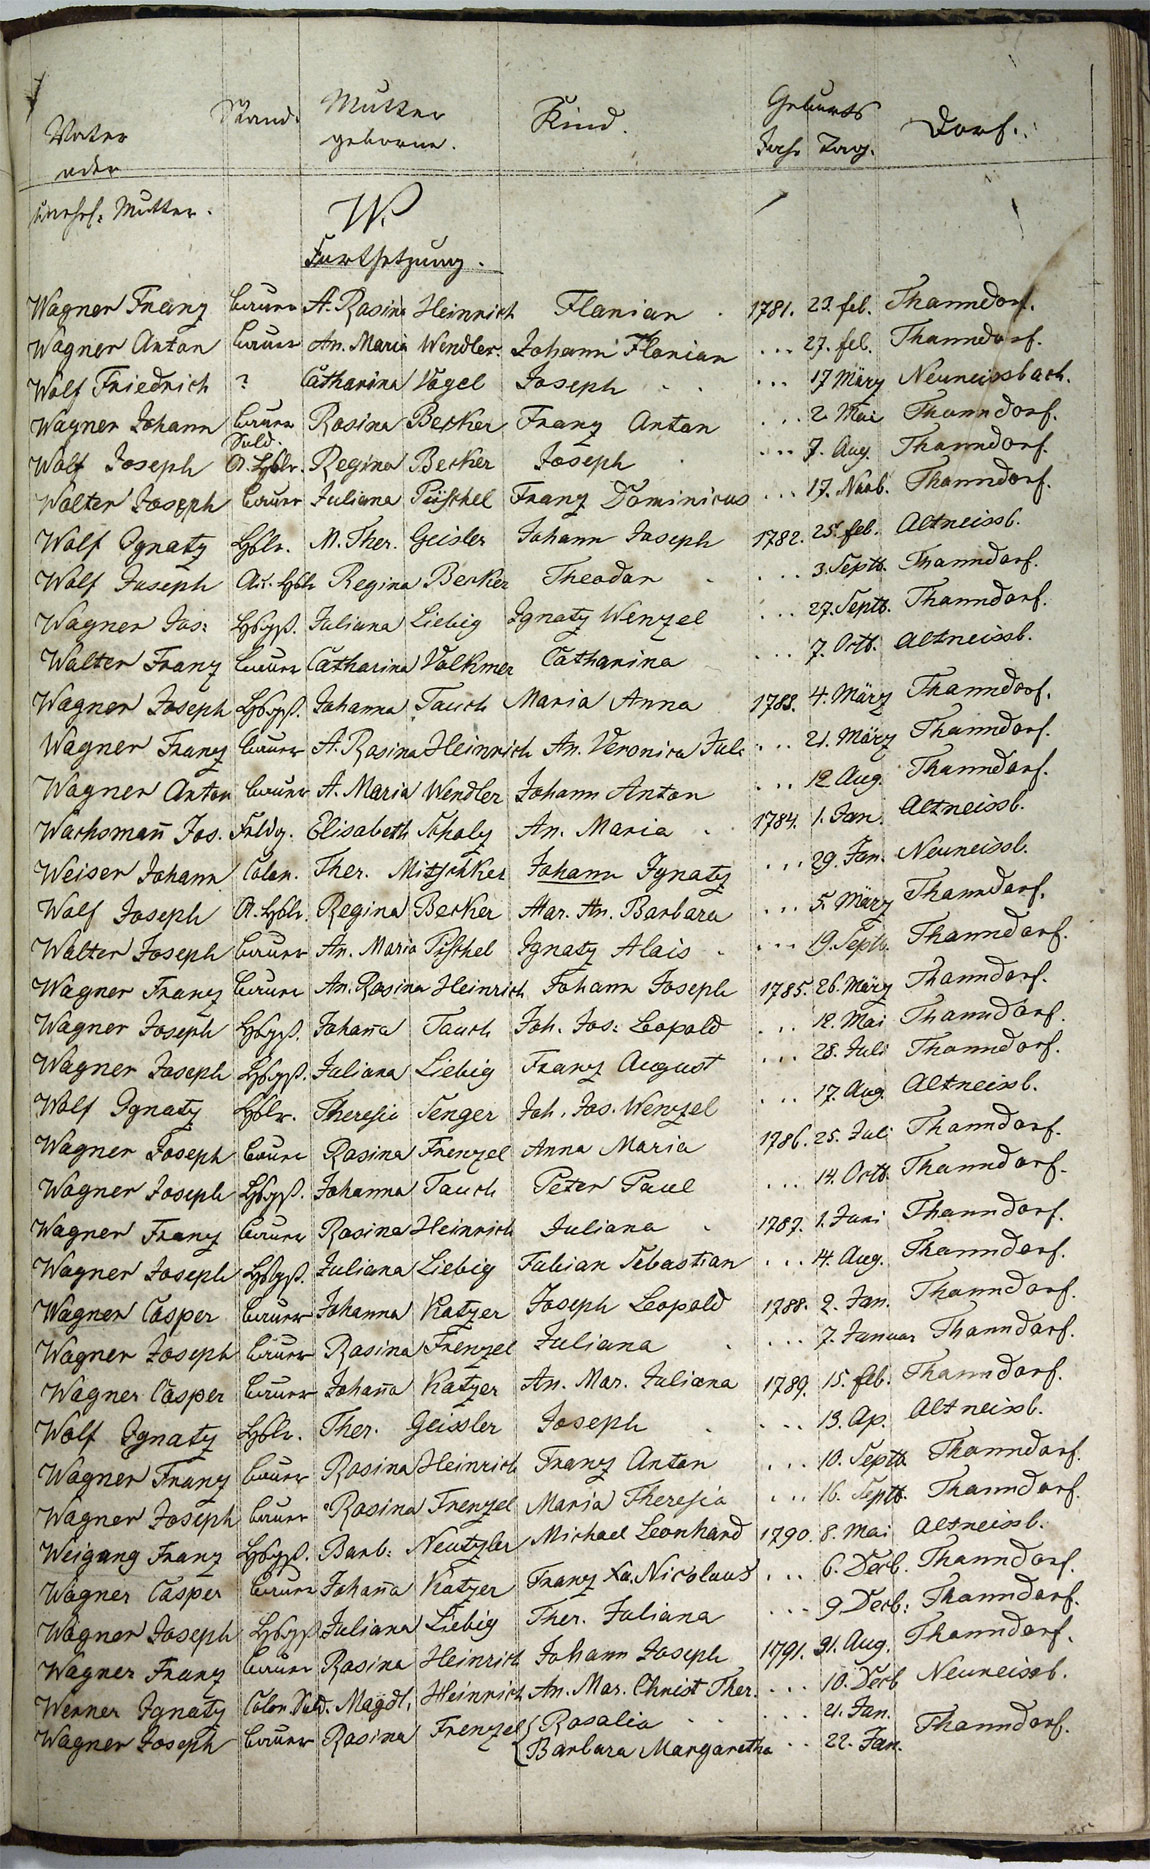 Vater
oder
unehel: Mutter.
Stand.
Mutter
geborne.
Kind.
Geburts
Jahr Tag.
Dorf.
W.
Fortsetzung.
Wagner Franz Bauer A. Rosina Heinrich Florian 1781. 23. feb. Thanndorf.
Wagner Anton Bauer An. Maria Wendler. Johann Florian ... 27. feb. Thanndorf.
Wolf Friedrich ? Catharina Vogel Joseph ... 17 März Neuneissbach.
Wagner Johann Bauer Rosina Becker Franz Anton ... 2. Mai Thanndorf.
Wolf Joseph Sold. A. Hslr. Regina Becker Joseph ... 7. Aug. Thanndorf.
Walter Joseph Bauer Juliana Püschel Franz Dominicus ... 17. Novb. Thanndorf.
Wolf Ignatz Hslr. M. Ther. Geisler Johann Joseph 1782. 25. feb. Altneissb.
Wolf Joseph Au. Hslr Regina Becker Theodor ... 3. Septb. Thanndorf.
Wagner Jos: Hsgß. Juliana Liebig Ignatz Wenzel ... 27. Septb. Thanndorf.
Walter Franz Bauer Catharina Volkmer Catharina ... 7. Octb. Altneissb.
Wagner Joseph Hsgß. Johanna Tauch Maria Anna 1783. 4. März Thanndorf.
Wagner Franz Bauer A. Rosina Heinrich An. Veronica Jul: ... 21. März Thanndorf.
Wagner Anton Bauer A. Maria Wendler Johann Anton ... 12 Aug. Thanndorf.
Wachsmañ Jos. Feldg. Elisabeth Scholz An. Maria 1784. 1. Jan. Altneissb.
Weiser Johann Colon. Ther. Mitschker Johann Ignatz ... 29. Jan. Neuneissb.
Wolf Joseph A. Hslr. Regina Becker Mar. An. Barbara ... 5. März Thanndorf.
Walter Joseph Bauer An. Maria Pischel Ignatz Alois ... 19. Septb. Thanndorf.
Wagner Franz Bauer An. Rosina Heinrich Johann Joseph 1785. 26. März Thanndorf.
Wagner Joseph Hsgß. Johaña Tauch Joh. Jos: Leopold ... 12. Mai Thanndorf.
Wagner Joseph Hsgß. Juliana Liebig Franz August ... 28. Juli Thanndorf.
Wolf Ignatz Hslr. Theresia Senger Joh. Jos. Wenzel ... 17. Aug. Altneissb.
Wagner Joseph Bauer Rosina Frenzel Anna Maria 1786. 25. Juli Thanndorf.
Wagner Joseph Hsgß. Johanna Tauch Peter Paul ... 14. Octb. Thanndorf.
Wagner Franz Bauer Rosina Heinrich Juliana 1787. 1. Juni Thanndorf.
Wagner Joseph Hsgß. Juliana Liebig Fabian Sebastian ... 14. Aug. Thanndorf.
Wagner Casper Bauer Johanna Katzer Joseph Leopold 1788. 2. Jan. Thanndorf.
Wagner Joseph Bauer Rosina Frenzel Juliana ... 7. Januar Thanndorf.
Wagner Casper Bauer Johaña Katzer An. Mar. Juliana 1789. 15. feb. Thanndorf.
Wolf Ignatz Hslr. Ther. Geissler Joseph ... 13. Ap. Altneissb.
Wagner Franz Bauer Rosina Heinrich Franz Anton ... 10. Septb. Thanndorf.
Wagner Joseph Bauer Rosina Frenzel Maria Theresia ... 16. Septb. Thanndorf.
Weigang Franz Hsgß. Barb: Neutzler Michael Leonhard 1790. 8. Mai Altneissb.
Wagner Casper Bauer Johaña Katzer Franz Xa. Nicolaus ... 6. Decb. Thanndorf.
Wagner Joseph Hsgß Juliana Liebig Ther. Juliana ... 9 Decb: Thanndorf.
Wagner Franz Bauer Rosina Heinrich Johann Joseph 1791. 31. Aug. Thanndorf.
Werner Ignatz Colon. Sold. Magdl. Heinrich An. Mar. Christ Ther. ... 10. Decb Neuneissb.
Wagner Joseph Bauer Rosina Frenzel { Rosalia ... 21. Jan.
Barbara Margaretha .. 22. Jan. Thanndorf.